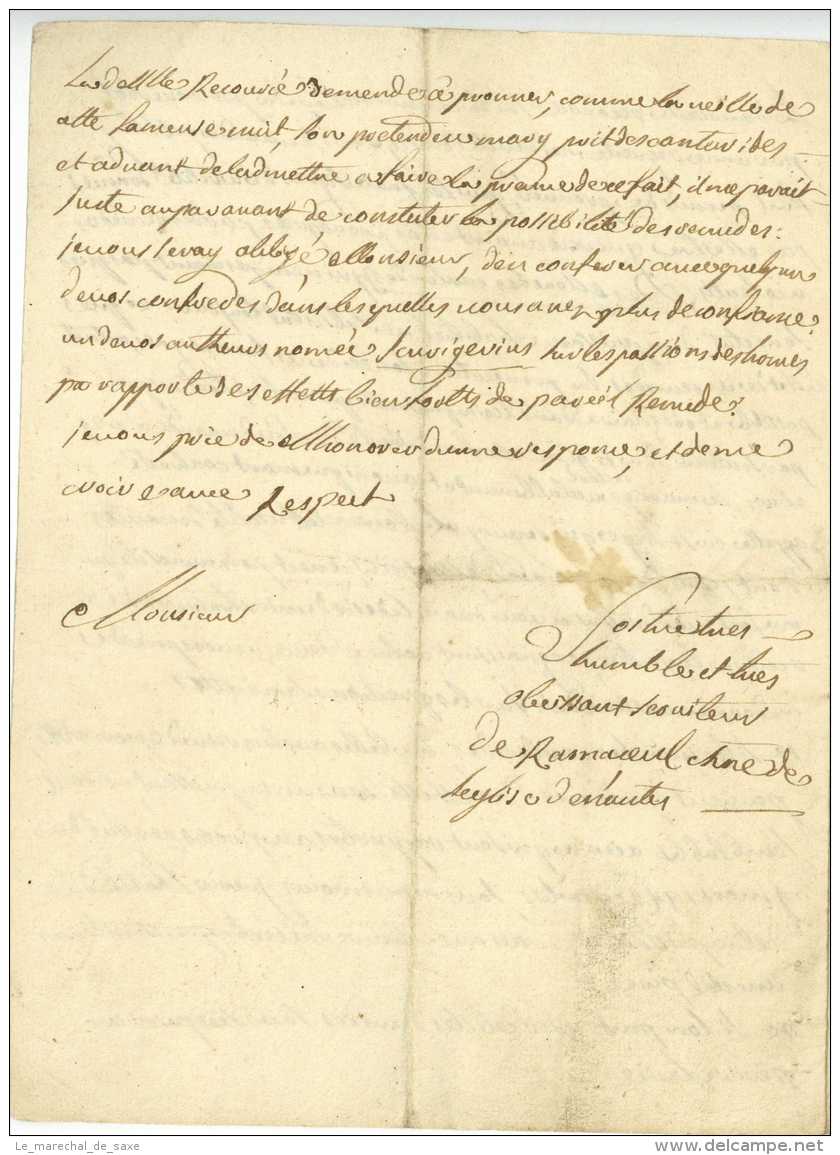 La dlle Recourcé demende a prouver, comme la veille de
cette fameuse nuit, son pretendeu mary prit des cantarides
et aduant de ladmettre a faire la preuue de ce fait, il me parait
juste auparauant de constater la possibilité des remedes:
je uous seray obligé Monsieur, den conferer auec quelqun
de uos confredes dans lesquelles uous auez plus de confiance.
un de uos autheurs nomée sur les passions des homes
rapporte des effetts bien sortis de pareil Remede:
je uous prie de Mhonorer dunne response, et de me
croire auec Respect
Monsieur
Vostre tres
humble et tres
obeissant seruiteur
de chne de
leglise de nantes
Le_marechal_de_saxe
delcampe.net